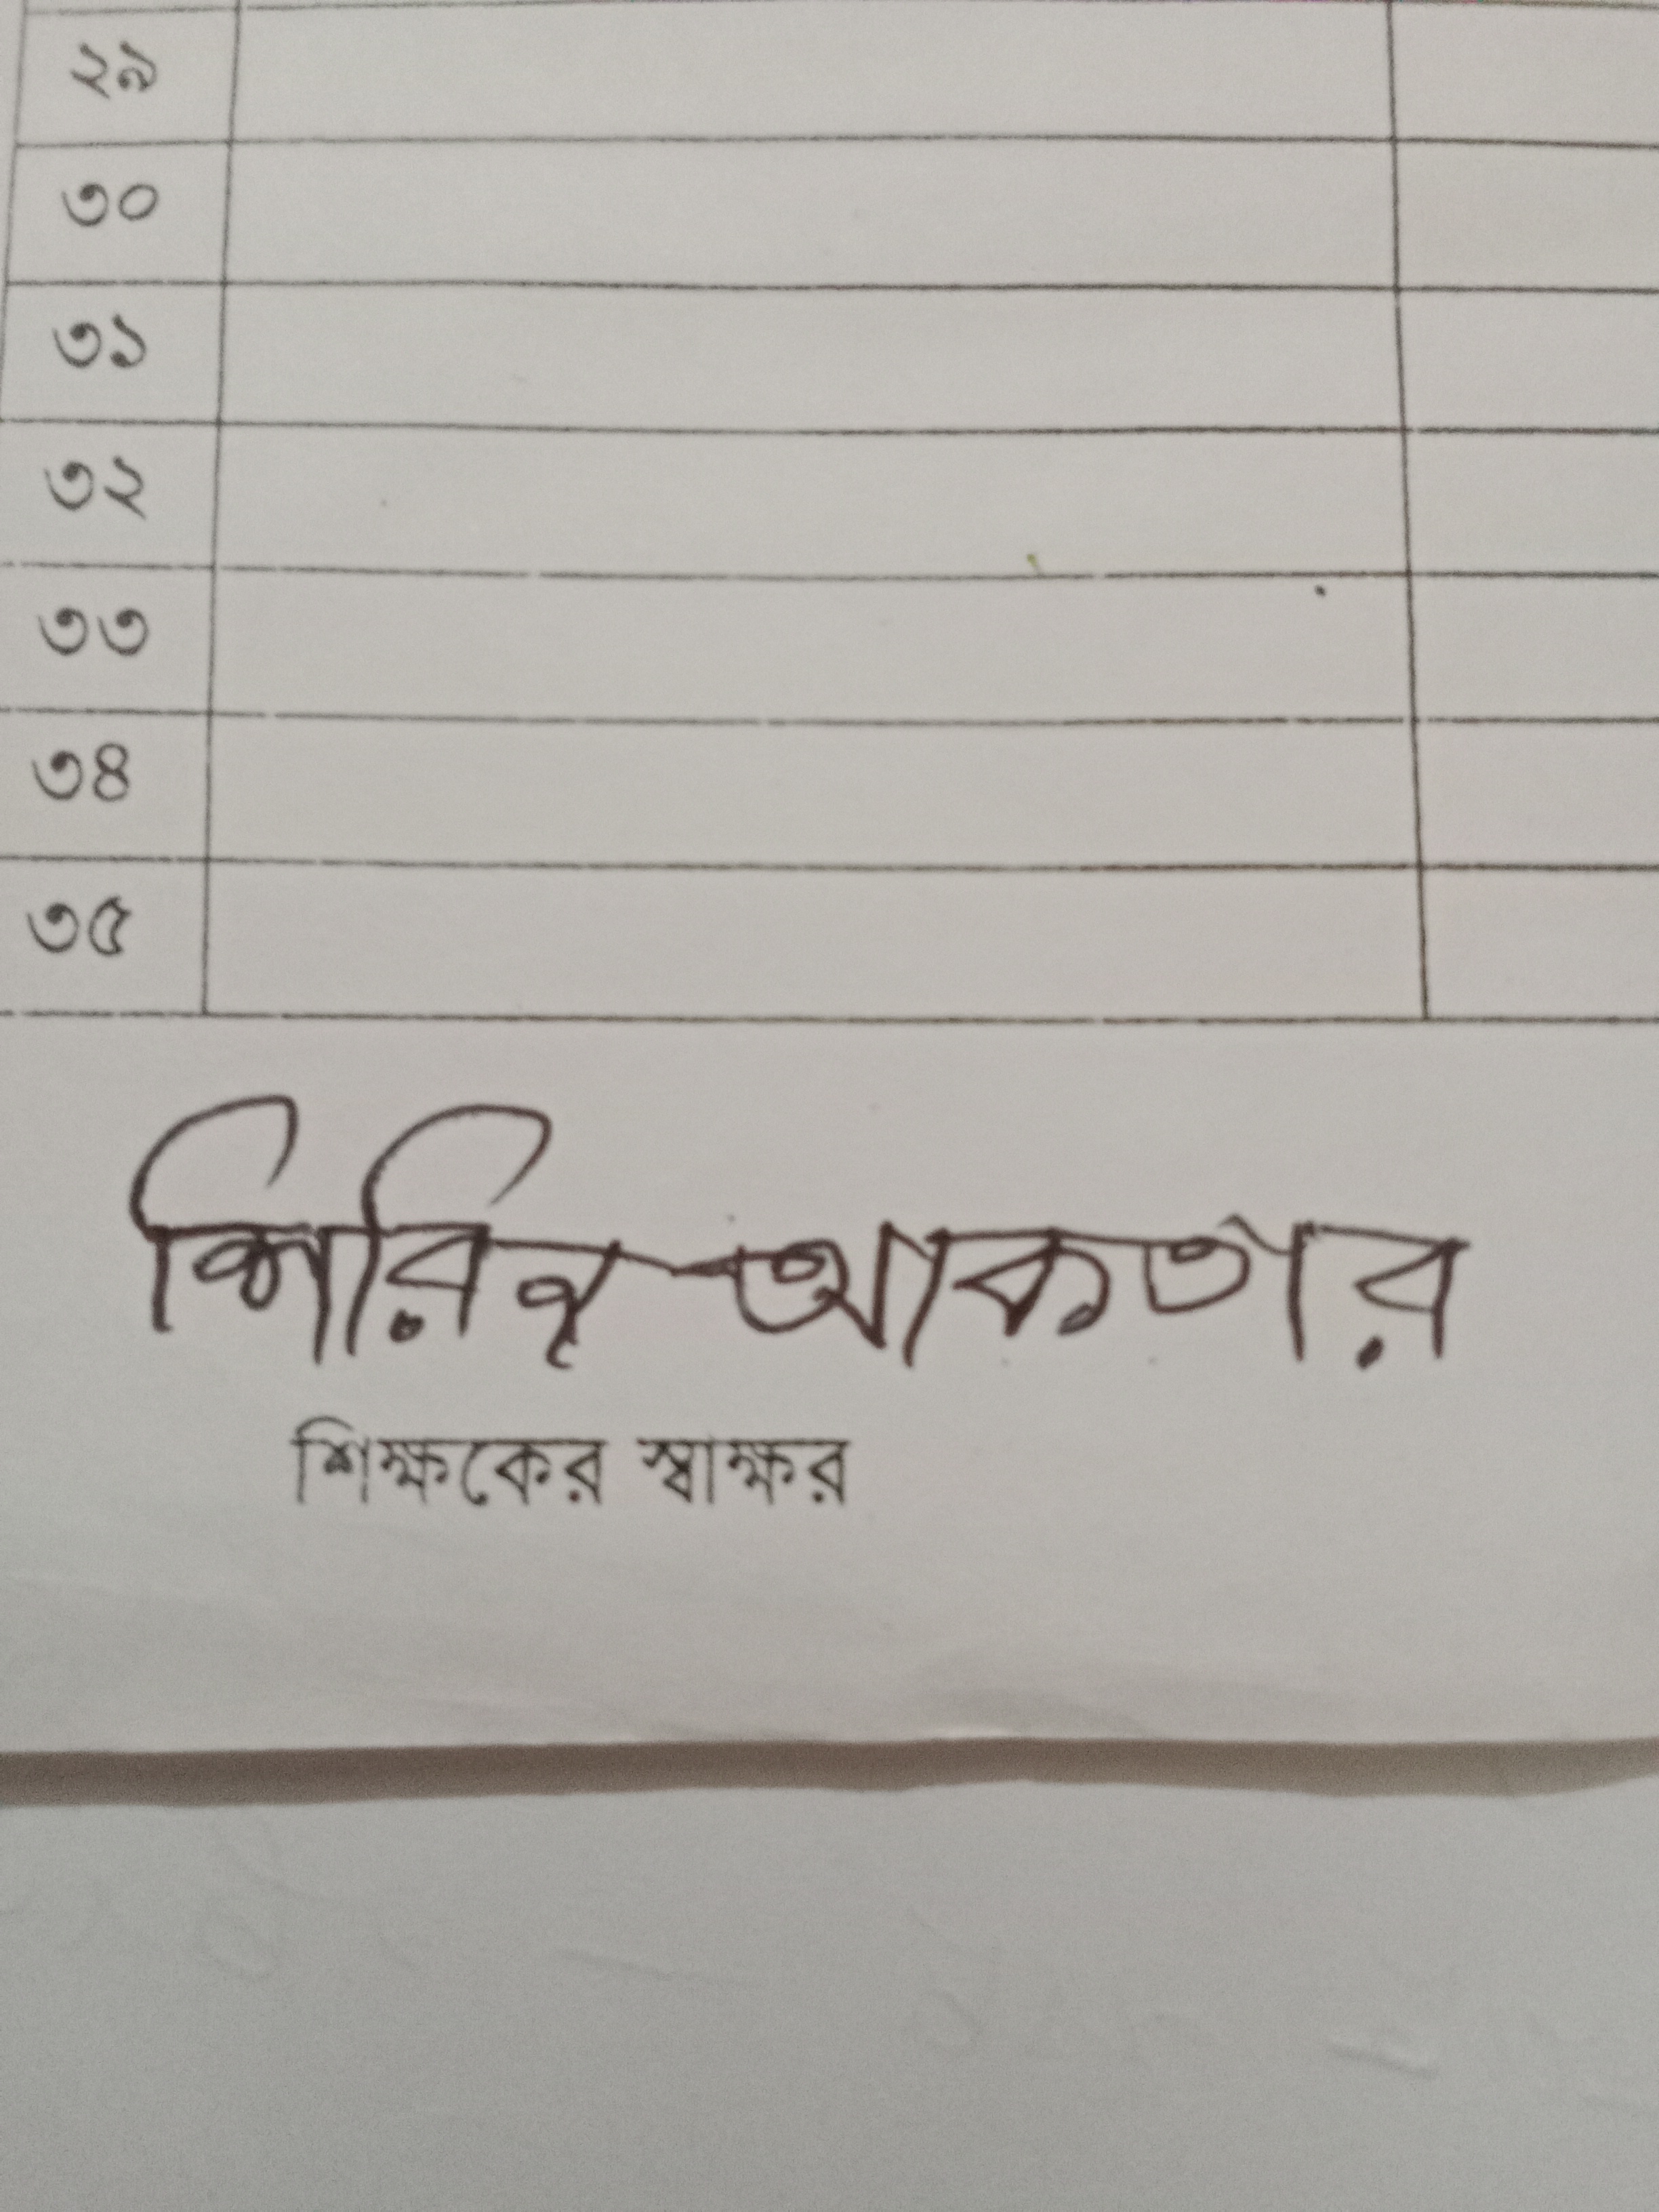 ২৯
৩০
৩১
৩২
৩৩
৩৪
৩৫
শিরিন আকতার
শিক্ষকের স্বাক্ষর